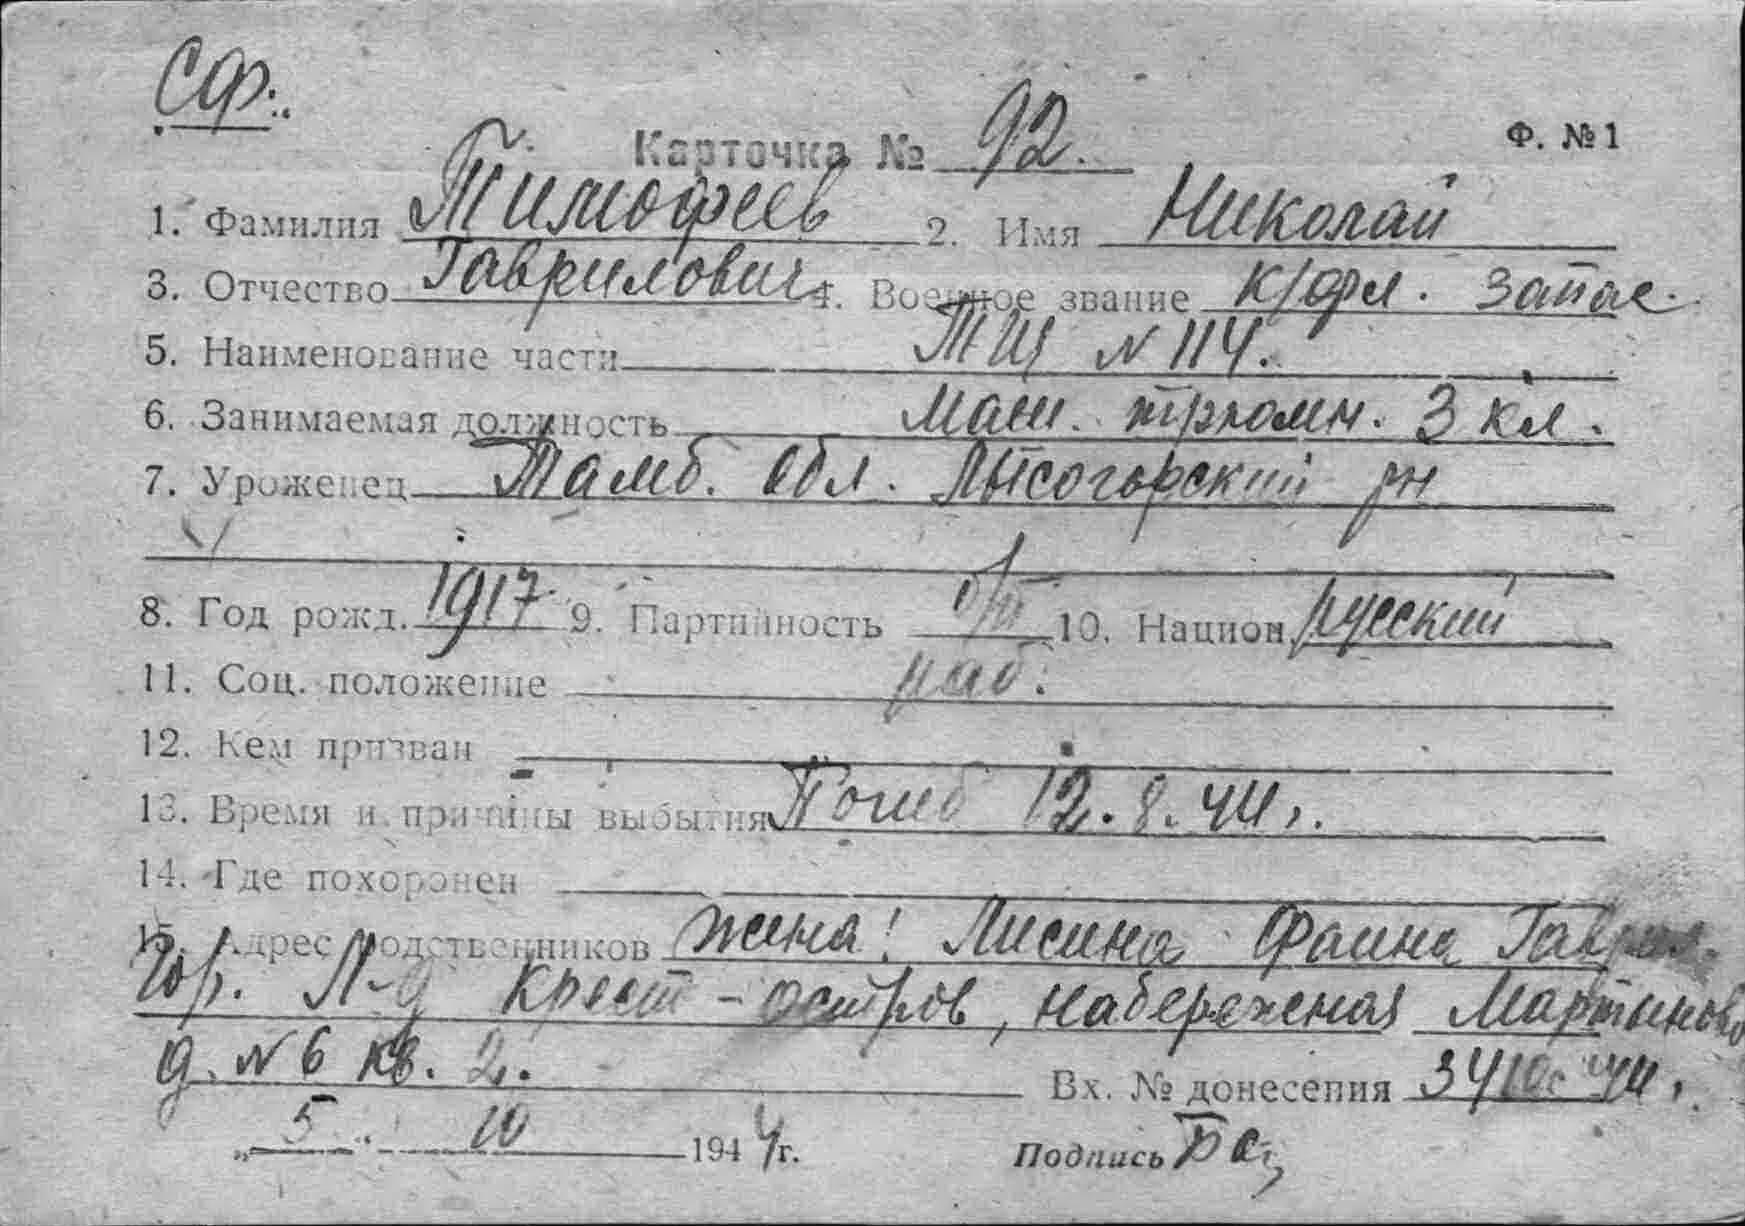 СФ.
Карточка № 92.
Ф. №1
1. Фамилия Тимофеев 2. Имя Николай
3. Отчество Гаврилович 4. Военное звание к/фл. запас.
5. Наименование части ТЩ N 114.
6. Занимаемая должность Маш. 3 кл.
7. Уроженец Тамб. обл. Лысогорский рн
8. Год рожд. 1917 9. Партийность б/п 10. Национ. русский
11. Соц. положение раб.
12. Кем призван
13. Время и причины выбытия Погиб 12.8.44 г.
14. Где похоронен
15. Адрес родственников жена: Лисина Фаина Гаврил.
гор. Л-д Крест-остров, набережная Мартынова
д. N 6 кв. 2.
Вх. № донесения 44 г.
„5" 10 1944 г. Подпись